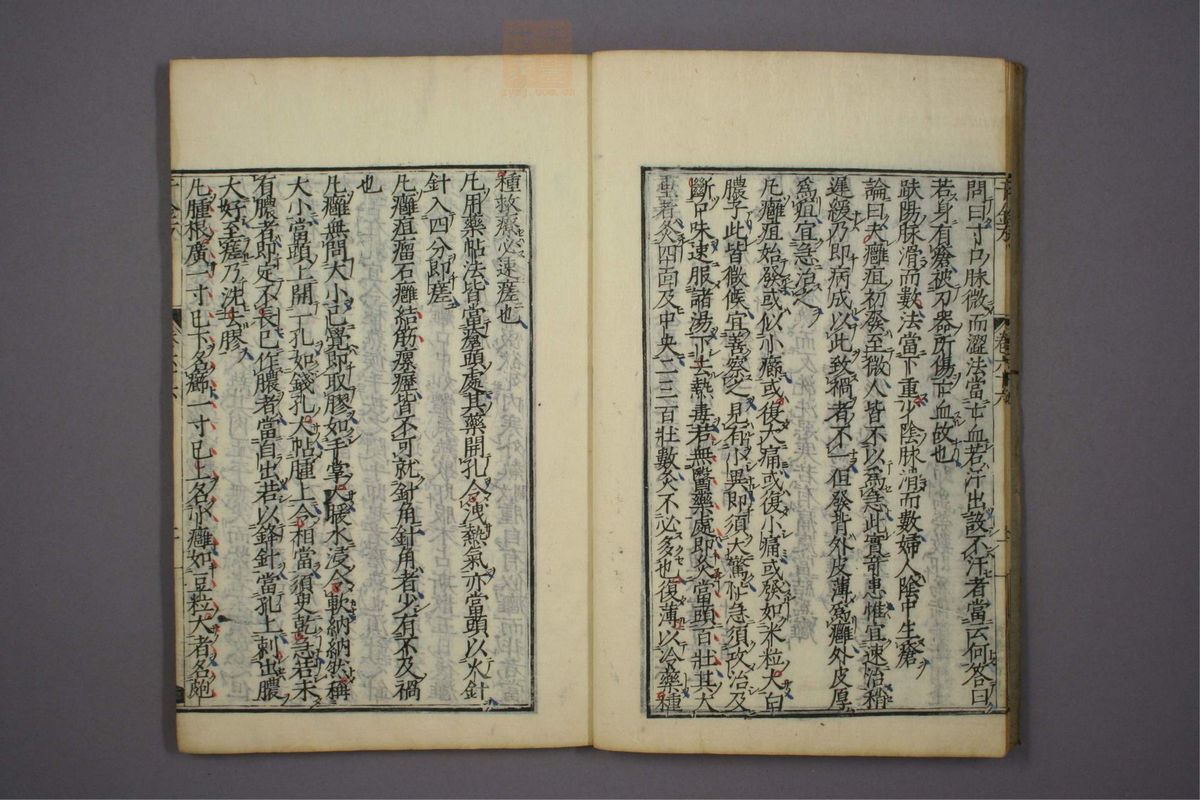 問曰寸口脉微而澀法當亡血若汗出設不汗者當云何荅曰
若身有瘡被刀器所傷亡血故也
趺陽脉滑而數法當下重少陰脉滑而數婦人陰中生瘡
論曰夫癰疽初發至微人皆不以爲急此實竒患惟宜速治稍
遲緩乃即病成以此致禍者不一但發背外皮薄爲癰外皮厚
爲疽宜急治之
凡癰疽始發或似小癤或復大痛或復小痛或發如米粒大白
膿子此皆微候宜善察之見有小異即須大驚忙急須攻治及
斷口味速服諸湯下去熱毒若無醫藥處即灸當頭百壯其大
重者灸四面及中央二三百壯數灸不必多也復薄以冷藥種
種救療必速瘥也
凡用藥帖法皆當瘡頭處其藥開孔令洩熱氣亦當頭以火針
針入四分即瘥
凡癰疽瘤石癰結筋瘰癧皆不可就針角針角者少有不及禍
也
凡癰無問大小已覺即取膠如手掌大暖水浸令軟納納然稱
大小當頭上開一孔如錢孔大帖腫上令相當須臾乾急若未
有膿者即定不長已作膿者當自出若以鋒針當孔上刺出膿
大好至瘥乃洗去膠
凡腫根廣一寸已下名癤一寸已上名小癰如豆粒大者名皰